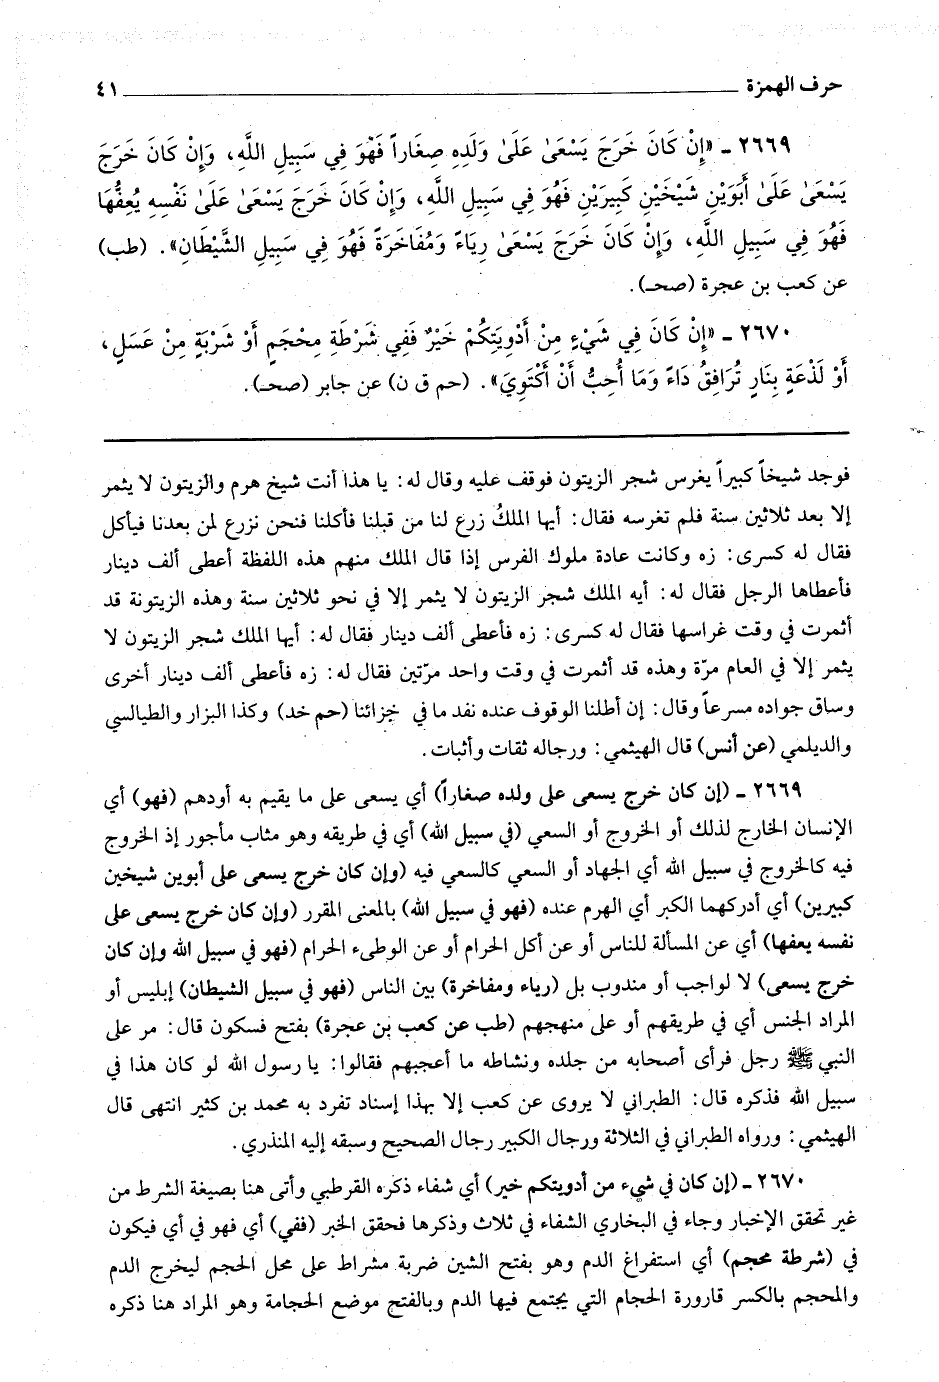 حرف الهمزة ٤١
٢٦٦٩ ـ «إِنْ كَانَ خَرَجَ يَسْعَىٰ عَلَىٰ وَلَدِهِ صِغَاراً فَهْوَ فِي سَبِيلِ اللَّهِ، وَإِنْ كَانَ خَرَجَ
يَسْعَىٰ عَلَىٰ أَبَوَيْنِ شَيْخَيْنِ كَبِيرَيْنِ فَهُوَ فِي سَبِيلِ اللَّهِ، وَإِنْ كَانَ خَرَجَ يَسْعَىٰ عَلَىٰ نَفْسِهِ يُعِفُّهَا
فَهُوَ فِي سَبِيلِ اللَّهِ، وَإِنْ كَانَ خَرَجَ يَسْعَىٰ رِيَاءً وَمُفَاخَرَةً فَهُوَ فِي سَبِيلِ الشَّيْطَانِ». (طب)
عن كعب بن عجرة (صحـ).
٢٦٧٠ ـ «إِنْ كَانَ فِي شَيْءٍ مِنْ أَدْوِيَتِكُمْ خَيْرٌ فَفِي شَرْطَةِ مِحْجَمٍ أَوْ شَرْبَةٍ مِنْ عَسَلٍ،
أَوْ لَذْعَةٍ بِنَارٍ تُوَافِقُ دَاءً وَمَا أُحِبُّ أَنْ أَكْتَوِيَ». (حم ق ن) عن جابر (صحـ).
فوجد شيخاً كبيراً يغرس شجر الزيتون فوقف عليه وقال له: يا هذا أنت شيخ هرم والزيتون لا يثمر
إلا بعد ثلاثين سنة فلم تغرسه فقال: أيها الملكُ زرع لنا من قبلنا فأكلنا فنحن نزرع لمن بعدنا فيأكل
فقال له كسرى: زه وكانت عادة ملوك الفرس إذا قال الملك منهم هذه اللفظة أعطى ألف دينار
فأعطاها الرجل فقال له: أيه الملك شجر الزيتون لا يثمر إلا في نحو ثلاثين سنة وهذه الزيتونة قد
أثمرت في وقت غراسها فقال له كسرى: زه فأعطى ألف دينار فقال له: أيها الملك شجر الزيتون لا
يثمر إلا في العام مرّة وهذه قد أثمرت في وقت واحد مرّتين فقال له: زه فأعطى ألف دينار أخرى
وساق جواده مسرعاً وقال: إن أطلنا الوقوف عنده نفد ما في خزائنا (حم خد) وكذا البزار والطيالسي
والديلمي (عن أنس) قال الهيثمي: ورجاله ثقات وأثبات.
٢٦٦٩ ـ (إن كان خرج يسعى على ولده صغاراً) أي يسعى على ما يقيم به أودهم (فهو) أي
الإنسان الخارج لذلك أو الخروج أو السعي (في سبيل الله) أي في طريقه وهو مثاب مأجور إذ الخروج
فيه كالخروج في سبيل الله أي الجهاد أو السعي كالسعي فيه (وإن كان خرج يسعى على أبوين شيخين
كبيرين) أي أدركهما الكبر أي الهرم عنده (فهو في سبيل الله) بالمعنى المقرر (وإن كان خرج يسعى على
نفسه يعفها) أي عن المسألة للناس أو عن أكل الحرام أو عن الوطىء الحرام (فهو في سبيل الله وإن كان
خرج يسعى) لا لواجب أو مندوب بل (رياء ومفاخرة) بين الناس (فهو في سبيل الشيطان) إبليس أو
المراد الجنس أي في طريقهم أو على منهجهم (طب عن كعب بن عجرة) بفتح فسكون قال: مر على
النبي ﷺ رجل فرأى أصحابه من جلده ونشاطه ما أعجبهم فقالوا: يا رسول الله لو كان هذا في
سبيل الله فذكره قال: الطبراني لا يروى عن كعب إلا بهذا إسناد تفرد به محمد بن كثير انتهى قال
الهيثمي: ورواه الطبراني في الثلاثة ورجال الكبير رجال الصحيح وسبقه إليه المنذري.
٢٦٧٠ ـ (إن كان في شيء من أدويتكم خير) أي شفاء ذكره القرطبي وأتى هنا بصيغة الشرط من
غير تحقق الإخبار وجاء في البخاري الشفاء في ثلاث وذكرها فحقق الخبر (ففي) أي فهو في أي فيكون
في (شرطة محجم) أي استفراغ الدم وهو بفتح الشين ضربة مشراط على محل الحجم ليخرج الدم
والمحجم بالكسر قارورة الحجام التي يجتمع فيها الدم وبالفتح موضع الحجامة وهو المراد هنا ذكره